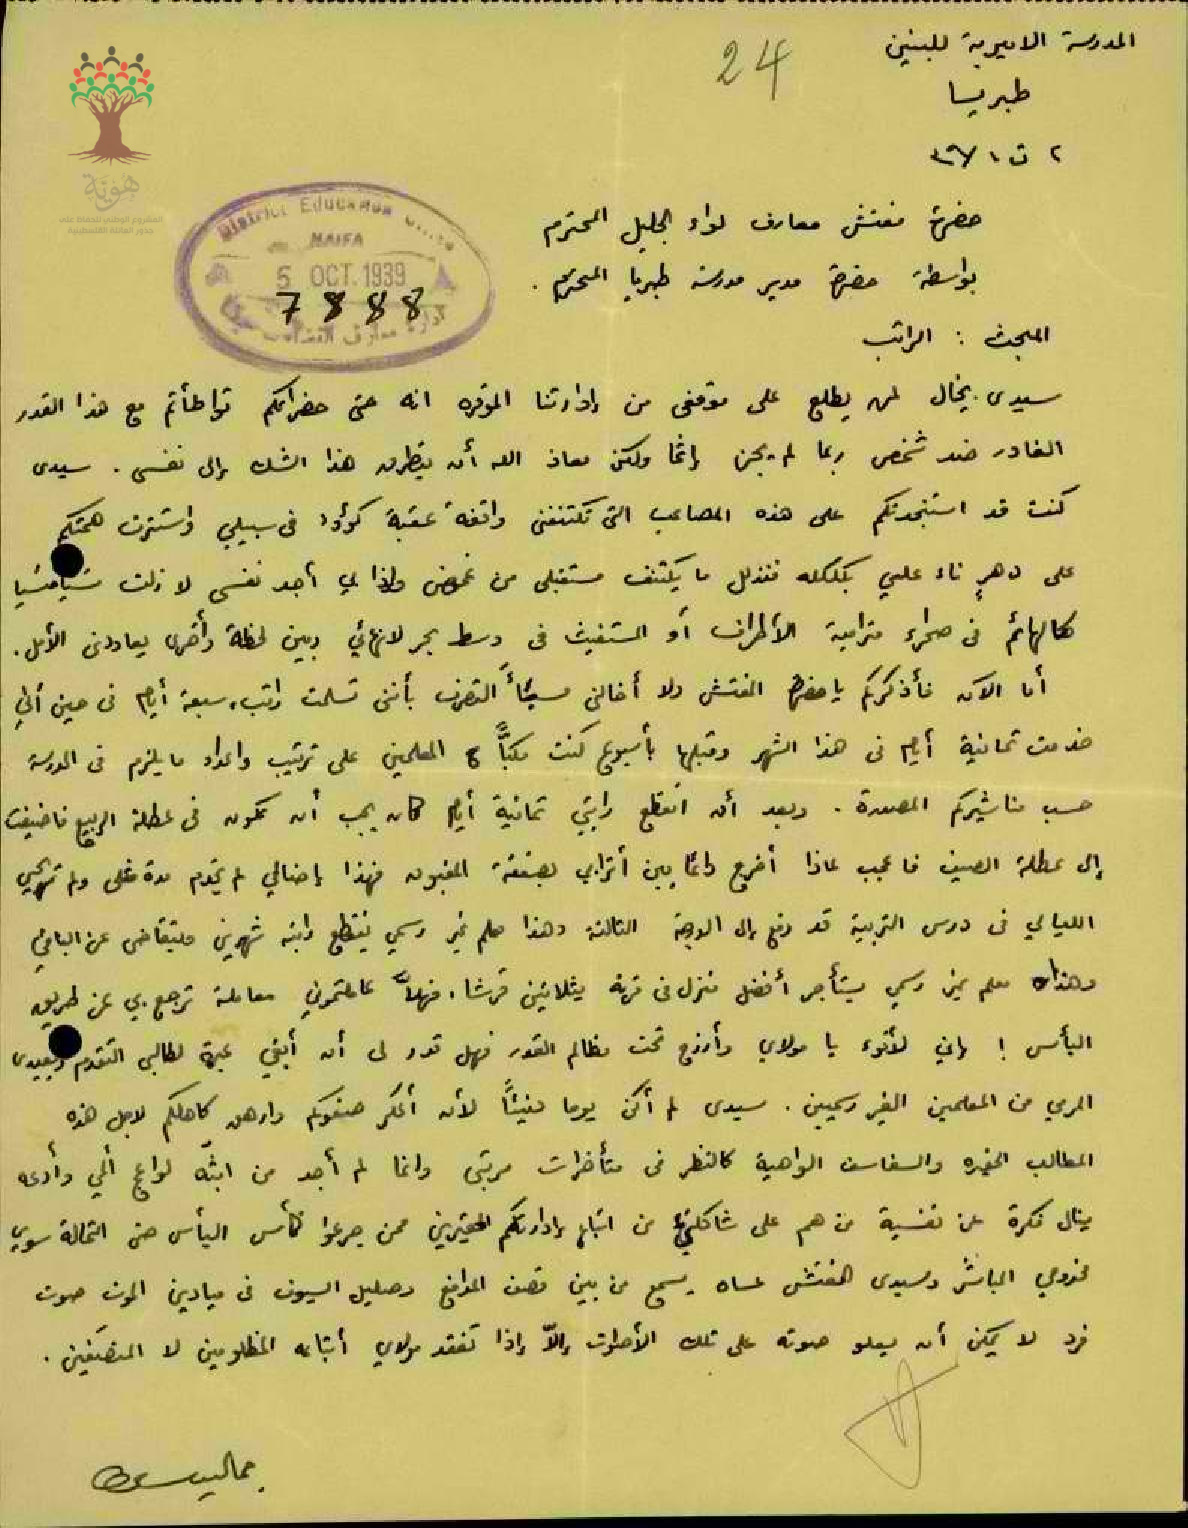 المدرسة الاميرية للبنين
24
طبريا
٢ ت ١
حضرة مفتش معارف لواء الجليل المحترم
بواسطة حضرة مدير مدرسة طبريا المحترم .
District Education
HAIFA
5 OCT. 1939
7888
ادارة معارف
هوية
المشروع الوطني للحفاظ على
جذور العائلة الفلسطينية
المبحث : الراتب
سيدي يخال لمن يطلع على موقفي من إدارتنا الموقرة انه حتى حضراتكم تواطأتم مع هذا القدر
الغادر ضد شخص ربما لم يجن إثما ولكن معاذ الله أن يتطرق هذا الشك إلى نفسي . سيدي
كنت قد استنجدتكم على هذه المصاعب التي تكتنفني واقفة عقبة كؤود في سبيلي واستثرت همتكم
على دهرٍ ناء علي بكلكله فتذلل ما يكتنف مستقبلي من غموض وإذا بي أجد نفسي لا زلت
كالهائم في صحراء مترامية الأطراف أو المستغيث في وسط بحر لانهائي وبين لحظة وأخرى يعاودني الأمل .
أما الآن فأذكركم يا حضرة المفتش ولا أخالني مسيئاً التصرف بأنني تسلمت راتب سبعة أيام في حين أني
خدمت ثمانية أيام في هذا الشهر وقبلها بأسبوع كنت مكباً مع المعلمين على ترتيب واعداد ما يلزم في المدرسة
حسب مناشيركم المصدرة . وبعد أن اقتطع راتبي ثمانية أيام كان يجب أن تكون في عطلة الربيع فاضيفت
إلى عطلة الصيف فأعجب لماذا أخرج دائما بين أترابي بصفقة المغبون فهذا إضالي لم يخدم مدة مثلي ولم
الليالي في درس التربية قد رفع إلى الدرجة الثالثة وهذا معلم غير رسمي يقتطع راتبه شهرين ويتقاضى عن الباقي
وهذا معلم غير رسمي يستأجر أفضل منزل في قرية بثلاثين قرشا، فهلاّ عاملتموني معاملة ترجع بي عن طريق
اليأس ! إني لأنوء يا مولاي وأرزح تحت مظالم القدر فهل قدر لي أن أبقي عبرة لطالبي التقدم
من المعلمين الغير رسميين . سيدي لم أكن يوما لأن أعكر صفوكم وارهق كاهلكم لاجل هذه
المطالب الحقيرة والسفاسف الواهية كالنظر في متأخرات مرتبي وانما لم أجد من ابثّه لواعج ألمي وأدعه
ينال فكرة عن نفسية من هم على شاكلتي من اتباع إدارتكم الحقيرين ممن جرعوا كأس اليأس حتى الثمالة سوى
المباشر وسيدي المفتش عساه يسمع من بين قصف المدافع وصليل السيوف في ميادين الموت صوت
فرد لا يمكن أن يعلو صوته على تلك الأصوات إلاّ إذا تفقد مولاي أتباعه المظلومين لا المنصفين .